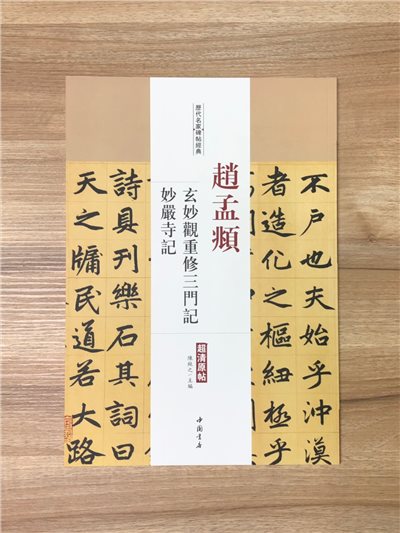 歷代名家碑帖經典
趙孟頫
玄妙觀重修三門記
妙嚴寺記
超清原帖
陳鈍之·主編
中國書店
不戶也夫始乎沖漠
者造化之樞紐極乎
詩具刊樂石其詞曰
天之牖民道若大路